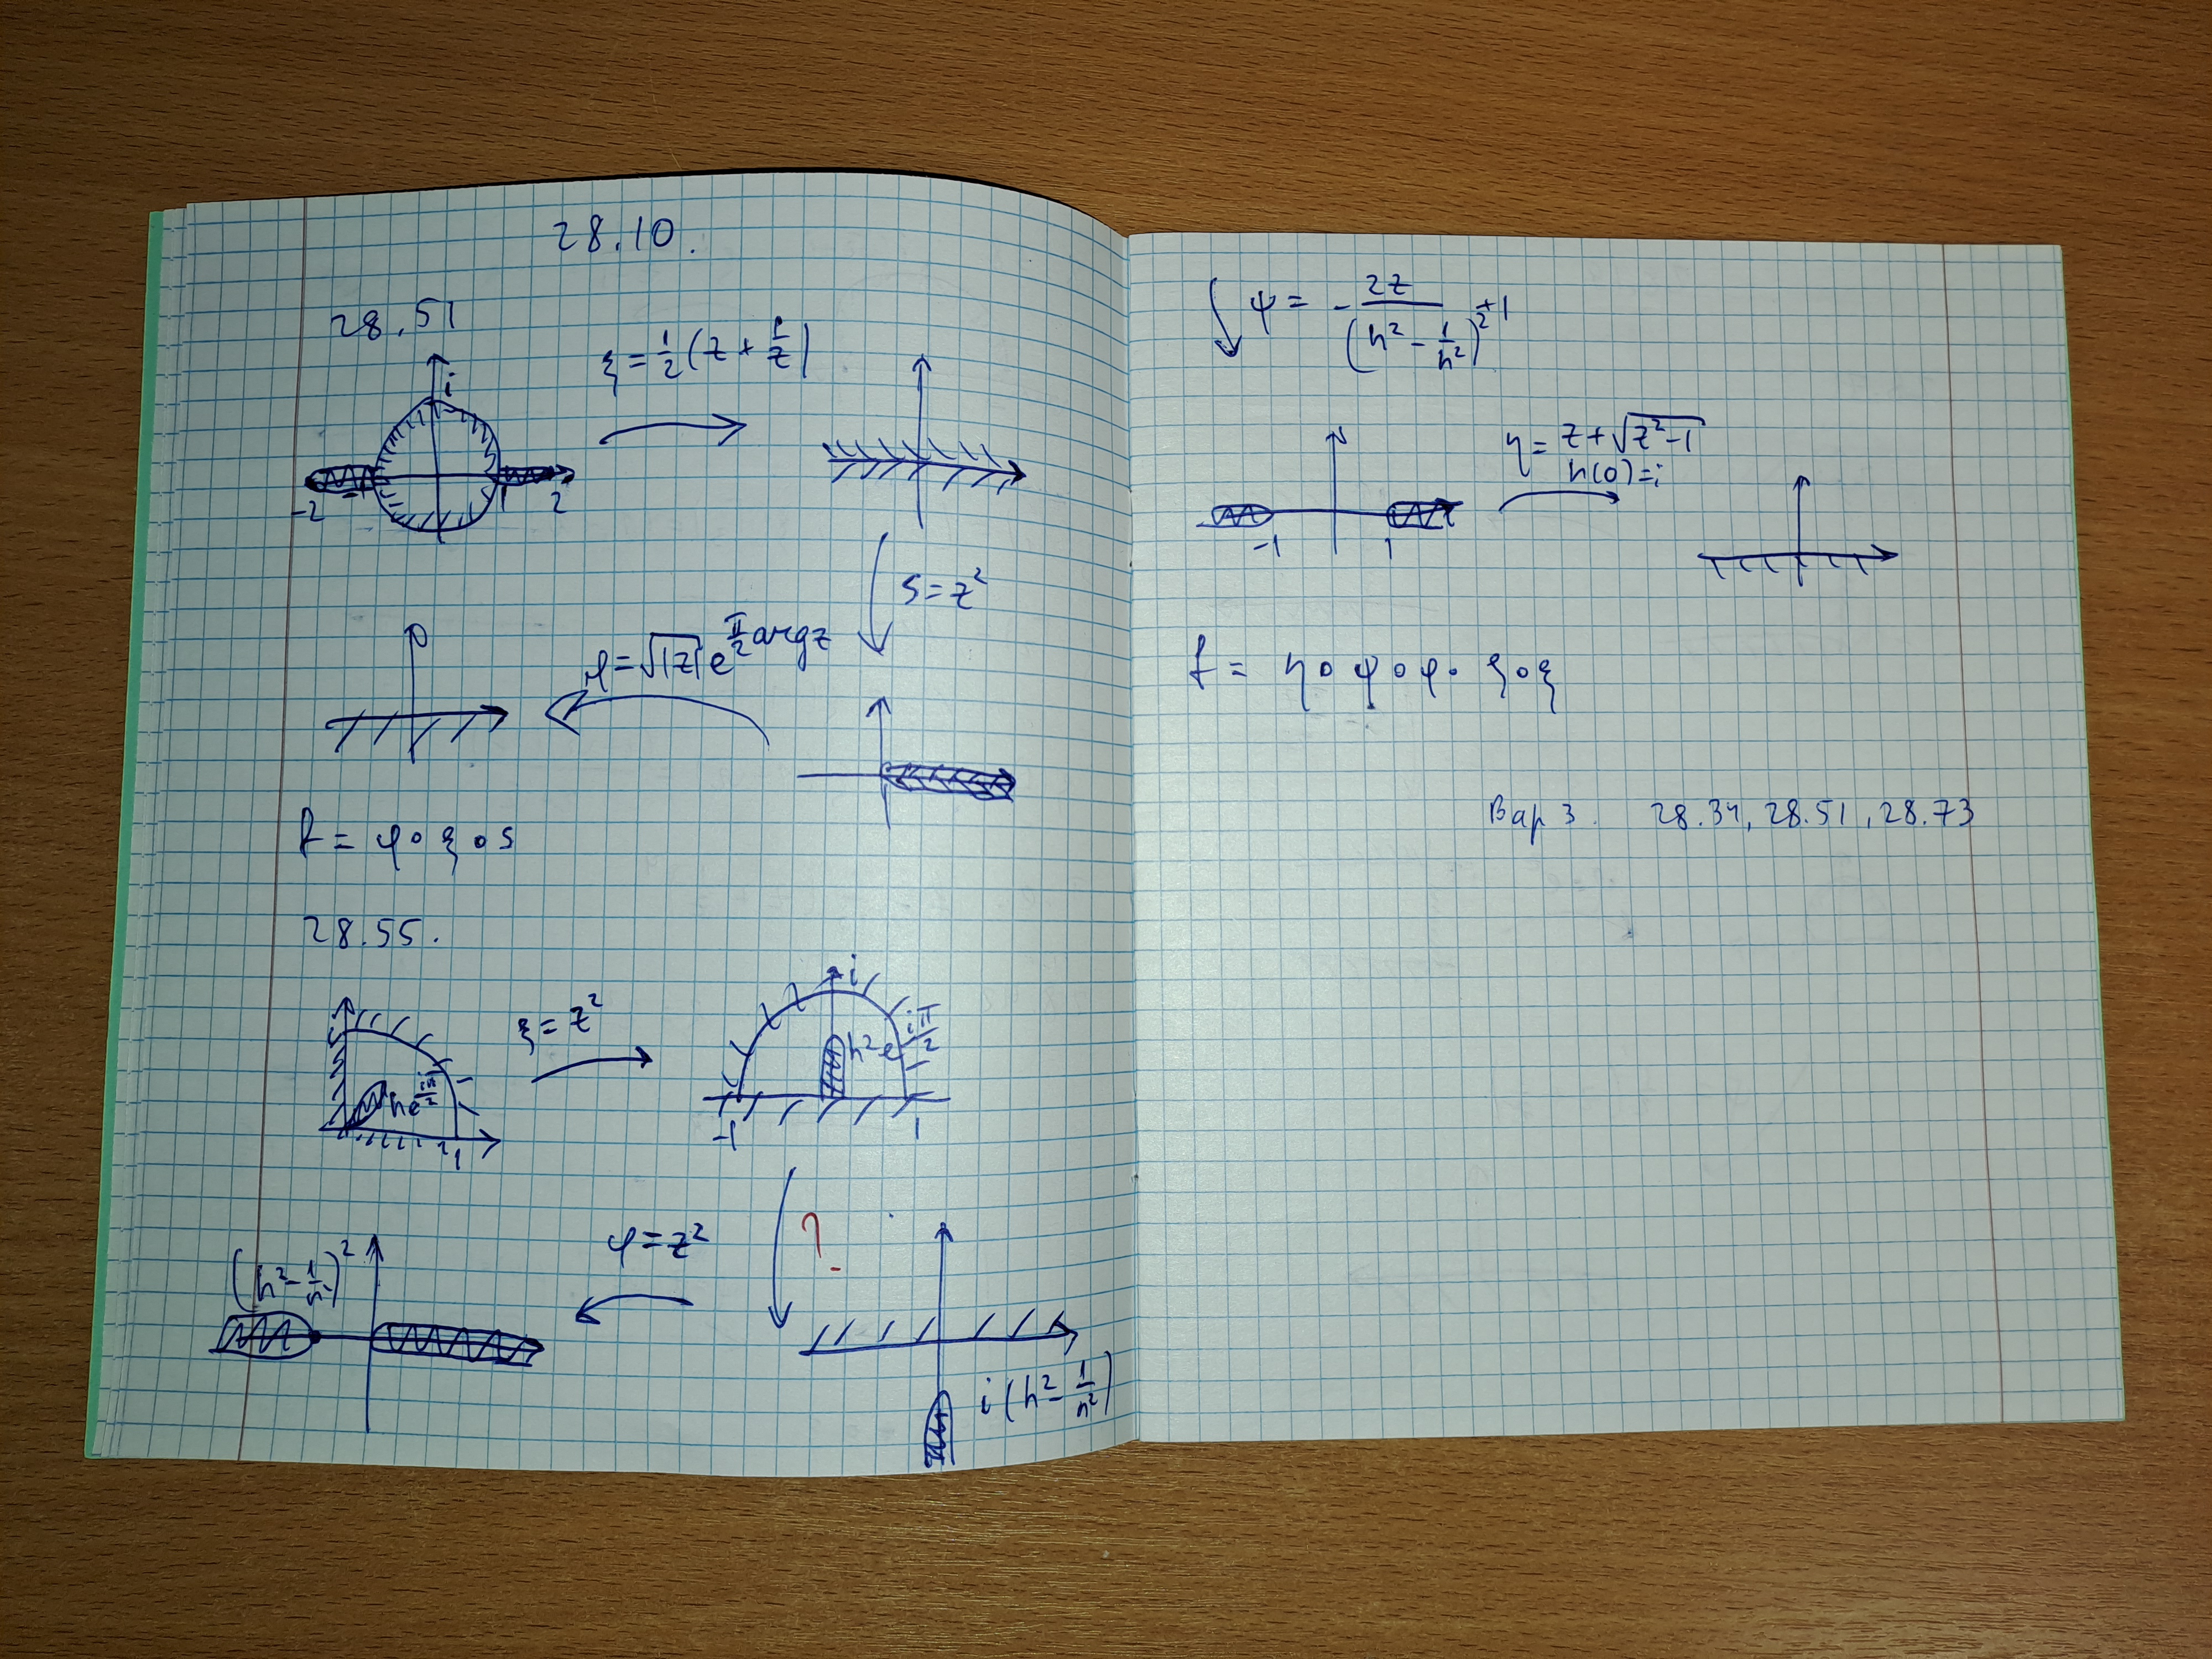 28.10.
28.51
ξ = 1/2 (z + 1/z)
i
-2 -1 1 2
S = z²
φ = √|z| e^(π/2 arg z)
f = φ∘ξ∘s
28.55.
ξ = z²
he^(iπ/2)
1
i
h²e^(iπ/2)
-1 1
?
φ = z²
(h² - 1/h²)²
i(h² - 1/h²)
ψ = - 2z/(h² - 1/h²)² + 1
-1 1
η = z + √(z² - 1)
h(0) = i
f = η∘ψ∘φ∘ζ∘ξ
Вар 3. 28.34, 28.51, 28.73